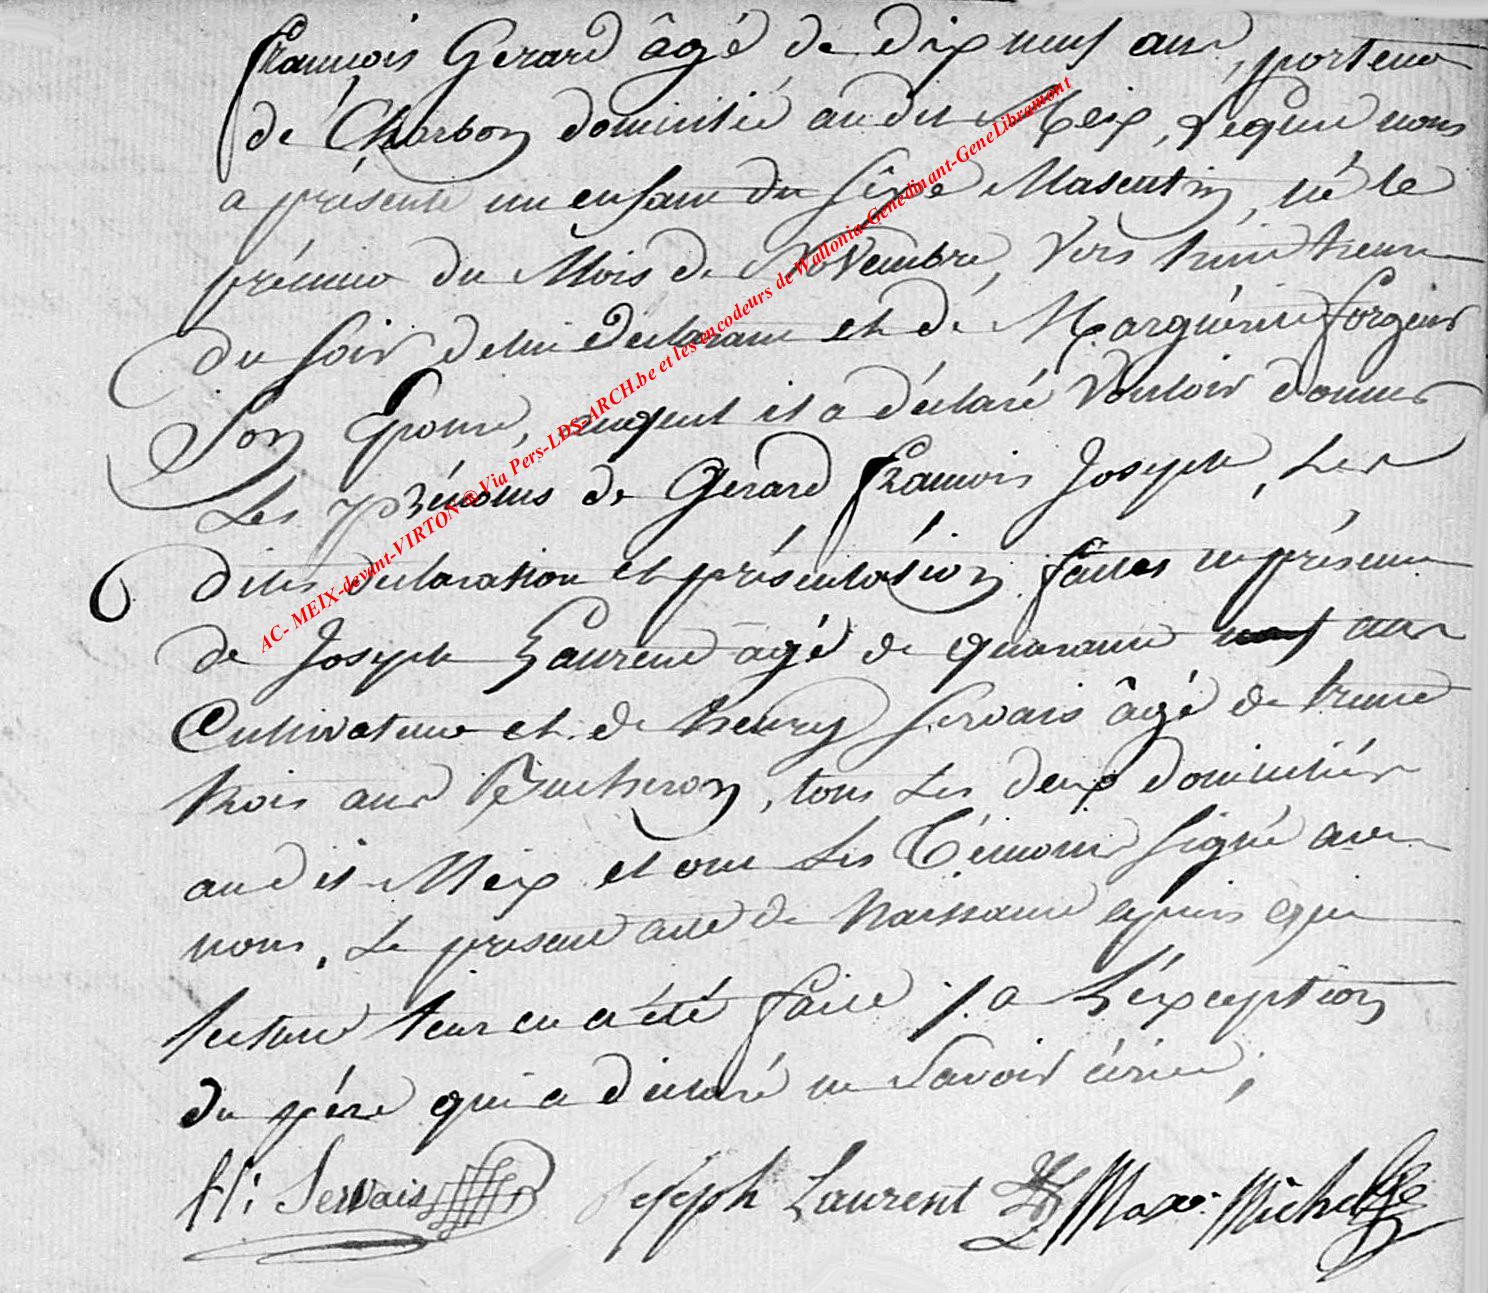 François Gerard âgé de dix neuf ans, porteur
de Charbon domicilié audit Meix, Lequel nous
a présenté un enfant du sêxe Masculin, né le
prémier du Mois de Novembre, vers huit heures
du soir de lui Déclarant et de Marguérite forgeur
Son Epouse, auquel il a déclaré Vouloir donner
Les prénoms de Gerard françois Joseph, Les
dites déclaration et présentation faites en présence
de Joseph Laurent agé de quarante ans
Cultivateur et de henry servais âgé de trente
trois ans Bucheron, tous Les deux domiciliés
audit Meix et ont Les Témoins signé avec
nous, Le présent acte de Naissance après que
lecture leur en a été faite /. a L'éxception
du pére qui a déclaré ne Savoir écrire;
Hi Servais Joseph Laurent Max. Michel
AC- MEIX-devant-VIRTON ® Via Pers-LDS-ARCH.be et les encodeurs de Wallonia-Genedinant-GeneLibramont